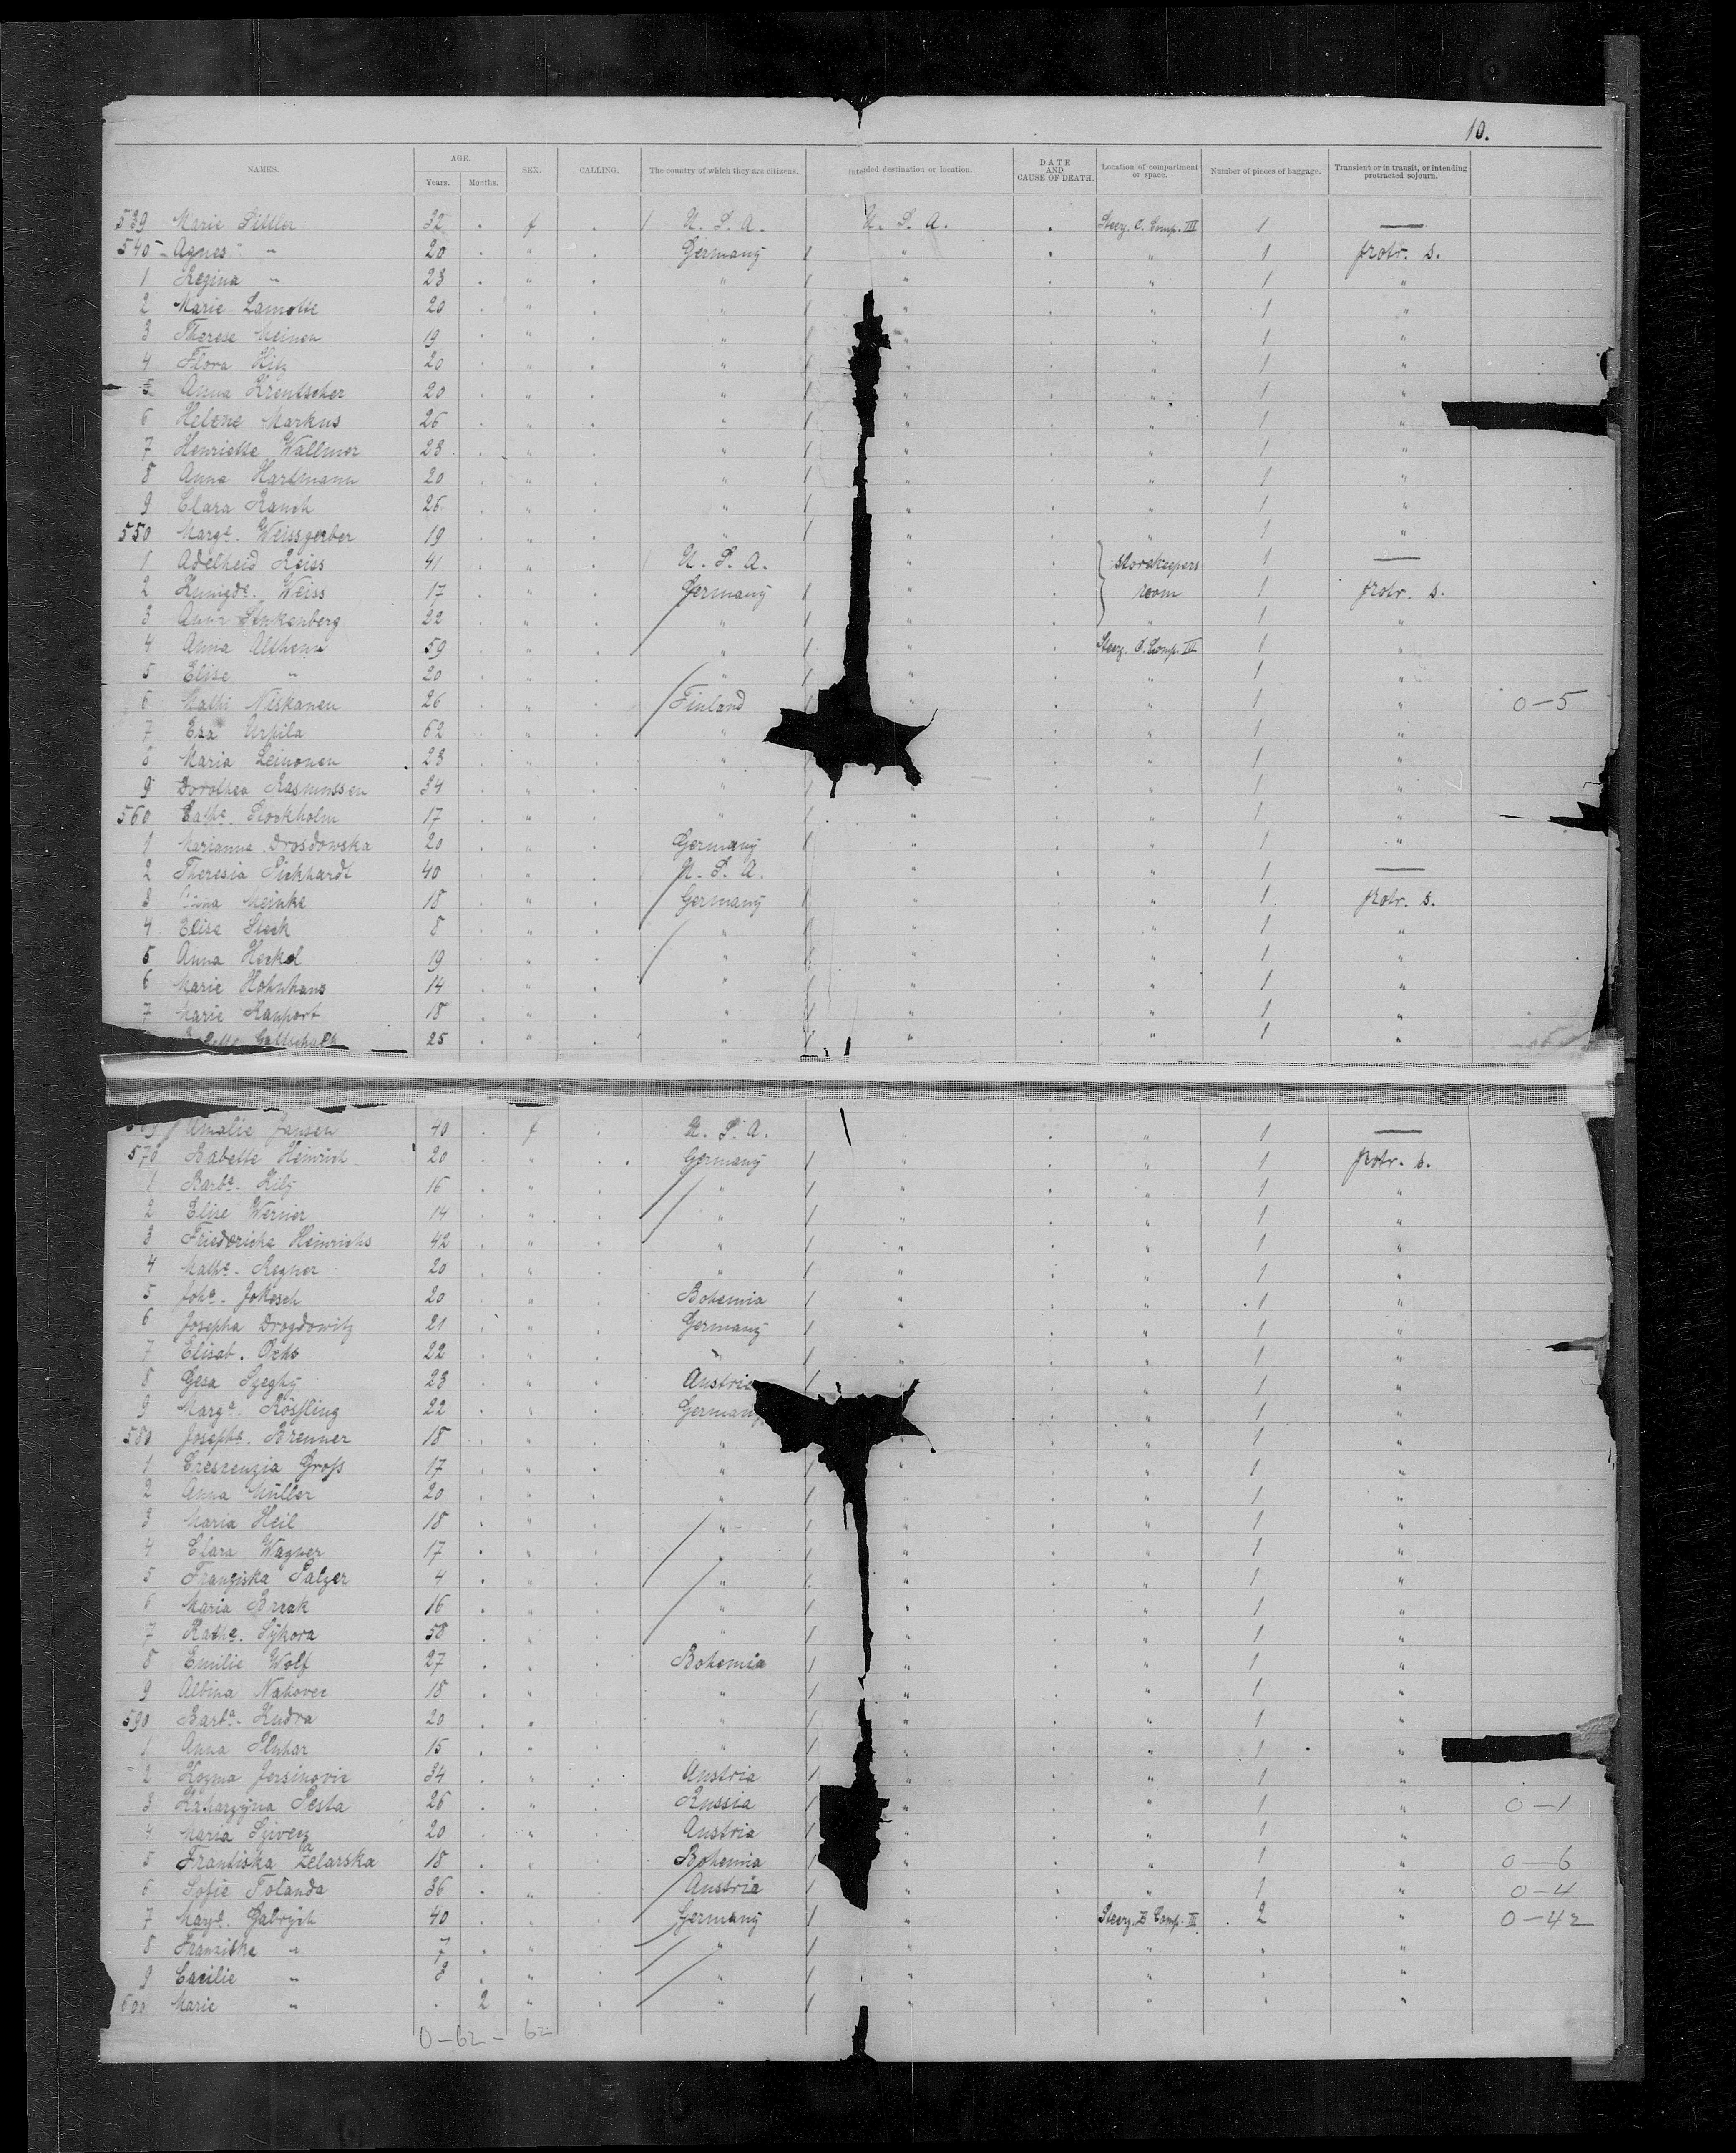 10.
NAMES. AGE. Years. Months. SEX. CALLING. The country of which they are citizens. Intended destination or location. DATE AND CAUSE OF DEATH. Location of compartment or space. Number of pieces of baggage. Transient or in transit, or intending protracted sojourn.
539 Marie Sittler 32 . f . U. S. A. U. S. A. . Steer. C. Comp. III 1 —
540 Agnes " 20 . " . Germany 1 " . " 1 protr. s.
1 Regina " 23 . " . " 1 " . " 1 "
2 Marie Lamotte 20 . " . " 1 " . " 1 "
3 Therese Meinen 19 . " . " 1 " . " 1 "
4 Flora Hitz 20 . " . " 1 " . " 1 "
5 Anna Krentscher 20 . " . " 1 " . " 1 "
6 Helene Markus 26 . " . " 1 " . " 1 "
7 Henriette Wallmer 28 . " . " 1 " . " 1 "
8 Anna Hartmann 20 . " . " 1 " . " 1 "
9 Clara Rauch 26 . " . " 1 " . " 1 "
550 Marge. Weissgerber 19 . " . " 1 " . " 1 "
1 Adelheid Reiss 41 . " . U. S. A. " . storekeepers 1 —
2 Kunigde. Weiss 17 . " . Germany 1 " . room 1 protr. s.
3 Anna Stukenberg 22 . " . " " . " 1 "
4 Anna Althenn 59 . " . " " . Steer. C. Comp. III 1 "
5 Elise " 20 . " . " 1 " . " 1 "
6 Mathi Niskanen 26 . " . Finland 1 " . " 1 " 0-5
7 Esa Urpila 62 . " . " . " 1 "
8 Maria Leinonen 23 . " . " . " 1 "
9 Dorothea Rasmussen 34 . " . " 1 " . " 1 "
560 Cathe. Stockholm 17 . " . " 1 " . " 1 "
1 Marianna Drosdowska 20 . " . Germany 1 " . " 1 "
2 Theresia Pickhardt 40 . " . U. S. A. " . " 1 —
3 Meinke 18 . " . Germany 1 " . " 1 protr. s.
4 Elise Steck 8 . " . " 1 " . " 1 "
5 Anna Herkel 19 . " . " 1 " . " 1 "
6 Marie Hohnhans 14 . " . " 1 " . " 1 "
7 Marie Rauport 18 . " . " 1 " . " 1 "
25 . " . " 1 " . " 1 "
Amalie Jansen 40 . f . U. S. A. " . " 1 —
570 Babette Heinrich 20 . " . Germany 1 " . " 1 protr. s.
1 Barba. Kilz 16 . " . " 1 " . " 1 "
2 Elise Werner 14 . " . " 1 " . " 1 "
3 Friedericke Heinrichs 42 . " . " 1 " . " 1 "
4 Mathe. Regner 20 . " . " 1 " . " 1 "
5 Joha. Jokesch 20 . " . Bohemia 1 " . " 1 "
6 Josepha Drozdowitz 21 . " . Germany 1 " . " 1 "
7 Elisab. Ochs 22 . " . " 1 " . " 1 "
8 Gesa Szeghy 23 . " . Austria 1 " . " 1 "
9 Marga. Rössling 22 . " . Germany . " 1 "
580 Josepha. Brenner 18 . " . " " . " 1 "
1 Crescenzia Gross 17 . " . " 1 " . " 1 "
2 Anna Müller 20 . " . " 1 " . " 1 "
3 Maria Heil 18 . " . " 1 " . " 1 "
4 Clara Wagner 17 . " . " 1 " . " 1 "
5 Franziska Salzer 4 . " . " 1 " . " 1 "
6 Maria Brzak 16 . " . " 1 " . " 1 "
7 Kathe. Sykora 58 . " . " 1 " . " 1 "
8 Emilie Wolf 27 . " . Bohemia 1 " . " 1 "
9 Albina Nahovec 18 . " . " 1 " . " 1 "
590 Barba. Kudra 20 . " . " 1 " . " 1 "
1 Anna Pluhar 15 . " . " 1 " . " 1 "
2 Kozma Jersinovic 34 . " . Austria 1 " . " 1 "
3 Katharzyna Pesta 26 . " . Russia 1 " . " 1 " 0-1
4 Maria 20 . " . Austria 1 " . " 1 "
5 Frantiska Zelarska 18 . " . Bohemia 1 " . " 1 " 0-6
6 Sofie Tolanda 36 . " . Austria 1 " . " 1 " 0-4
7 Marge. Gabrych 40 . " . Germany 1 " . Steer. D Comp. III 2 " 0-42
8 Franziska " 7 . " . " 1 " . " . "
9 Cacilie " 3 . " . " 1 " . " . "
600 Marie " . 2 " . " 1 " . " . "
0-62- 62